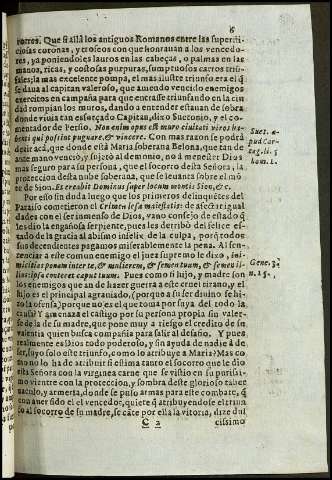 6
rores. Que si allà los antiguos Romanos entre las supersti-
ciosas coronas, y trofeos con que honrauan a los vencedo-
res, ya poniendoles lauros en las cabeças, o palmas en las
manos, ricas, y costosas purpuras, sumptuosos carros triũ-
fales; la mas excelente pompa, el mas ilustre triunfo era el q̃
se daua al capitan valeroso, que auiendo vencido enemigos
exercitos en campaña para que entrasse triunfando en la ciu
dad rompian los muros, dando a entender estauan de sobra
donde viuia tan esforçado Capitan, dixo Suetonio, y el co-
mentador de Persio. Non enim opus est muro ciuitati viros ha-
benti qui possint pugnare, & vincere. Con mas razon se podrà
dezir acà, que donde està Maria soberana Belona, que tan de
ante mano venciò, y sujetò al demonio, no â menester Dios
mas seguro para su persona, que el socorro desta Señora, la
proteccion desta nube soberana, que se leuanta sobre el mõ
te de Sion. Et creabit Dominus super locum montis Sion, &c.
Por esso sin duda luego que los primeros delinquẽtes del
Paraiso cometieron el Crimen lesæ maiestatis de afectar igual
dades con el ser inmenso de Dios, vano consejo de estado q̃
les dio la engañosa serpiente, pues les derribò del felice es-
tado de la gracia al abismo infelix de la culpa, porq̃ todos
sus decendientes pagamos miserablemente la pena. Al sen-
tenciar a este comun enemigo el juez supremo le dixo, ini-
micitias ponam inter te, & mulierem, & semen tuum, & semen il-
lius, ipsa conteret caput tuum. Pues como si hijo, y madre son
los enemigos que an de hazer guerra a este cruel tirano, y el
hijo es el principal agrauiado, (porque a su ser diuino se hi-
zo la ofensa) porque no es el que toma por suya del todo la
causa? Y amenaza el castigo por su persona propia sin valer-
se de la de su madre, que pone muy a riesgo el credito de su
valentia quien busca compañia para salir al desafio. Y pues
realmente es Dios todo poderoso, y sin ayuda de nadie â de
ser, suyo solo este triunfo, como lo atribuye a Maria? Mas co
mo no lo ha de atribuir si estima tanto el socorro que le dio
esta Señora con la virginea carne que se vistio en su purissi-
mo vientre con la proteccion, y sombra deste glorioso taber
naculo, y armeria, donde se puso armas para este combate, q̃
con auer sido el el vencedor, quiere q̃ atribuyendose el triũfo
al socorro de su madre, se cãte por ella la vitoria, dize dul
C 2
cissimo
Suet. a-
pud Car-
tag. li. 5
hom. 1.
Gene. 3.
n. 15.